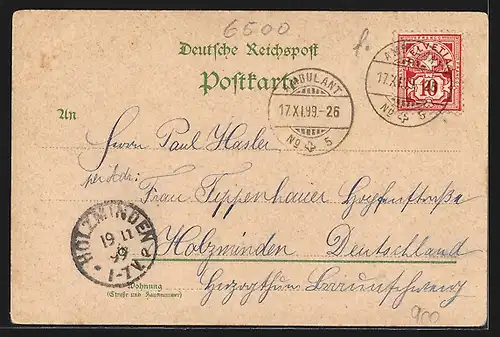 6500
f.
Deutsche Reichspost
Postkarte
AMBULANT
17.XI.99.-26
No 5
HELVETIA
10
17.XI.99
No 5
An
Herrn Paul Hasler
per Adr:
Frau Teppenhauer Hopfenstraße
Holzminden Deutschland
Herzogthum Braunschweig
HOLZMINDEN
19 11
Wohnung
(Straße und Hausnummer)
900